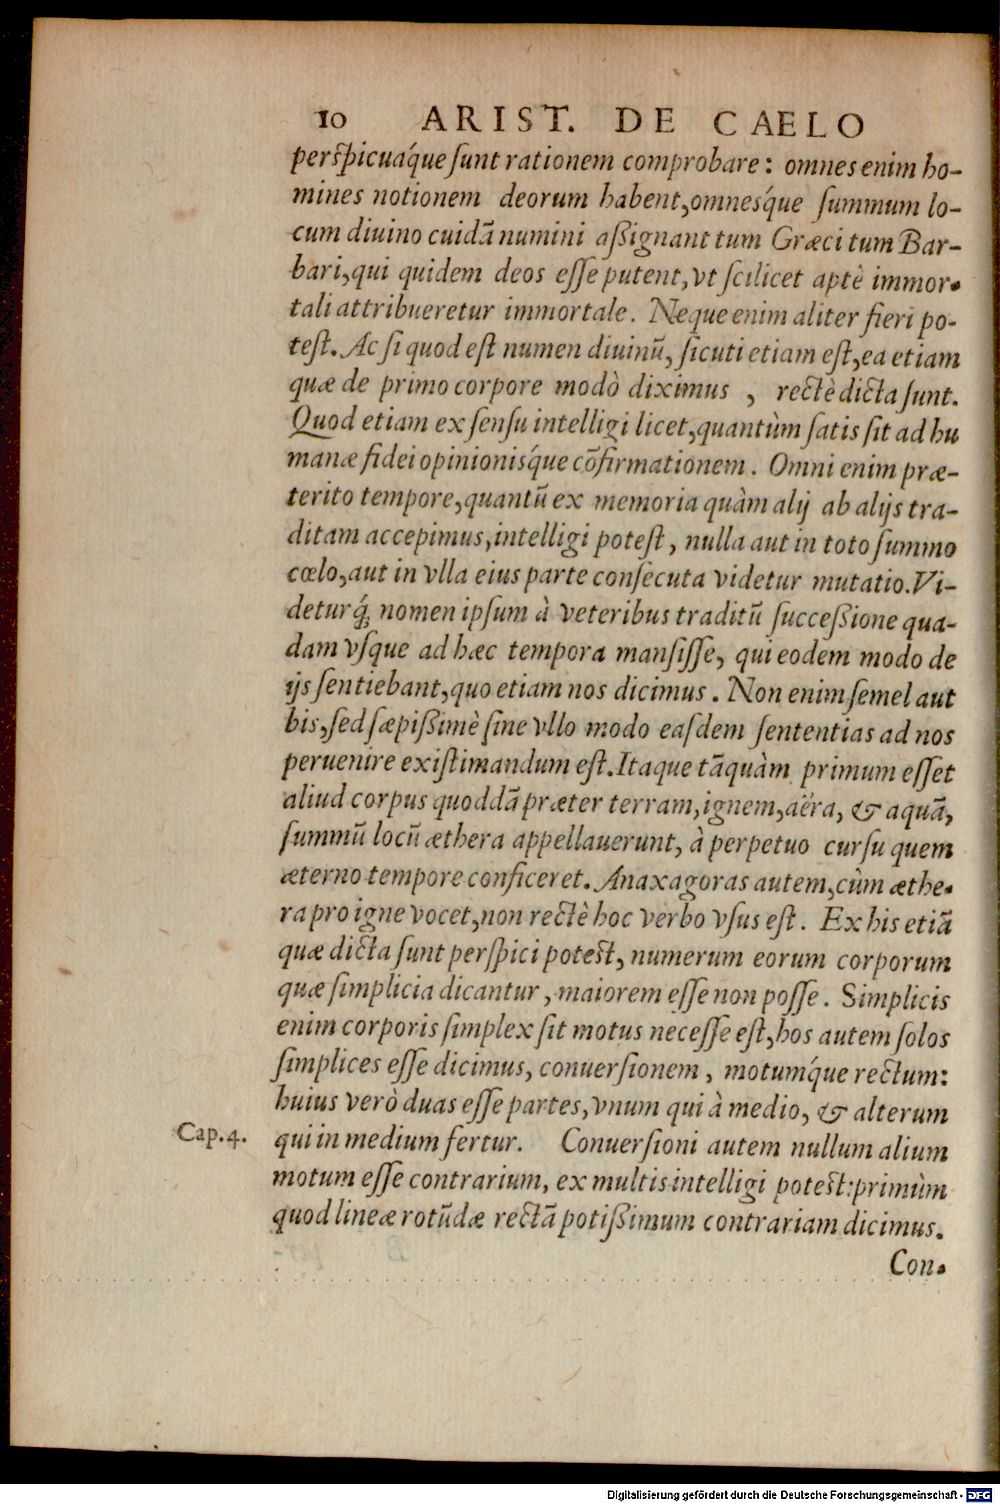 10 ARIST. DE CAELO
perſpicuáque ſunt rationem comprobare: omnes enim ho-
mines notionem deorum habent, omnesq́ue ſummum lo-
cum diuino cuidã numini aßignant tum Græci tum Bar-
bari, qui quidem deos eſſe putent, vt ſcilicet aptè immor-
tali attribueretur immortale. Neque enim aliter fieri po-
teſt. Ac ſi quod eſt numen diuinũ, ſicuti etiam eſt, ea etiam
quæ de primo corpore modò diximus , rectè dicta ſunt.
Quod etiam ex ſenſu intelligi licet, quantùm ſatis ſit ad hu
manæ fidei opinionisq́ue cõfirmationem. Omni enim præ-
terito tempore, quantũ ex memoria quàm alij ab alijs tra-
ditam accepimus, intelligi poteſt, nulla aut in toto ſummo
cœlo, aut in vlla eius parte conſecuta videtur mutatio. Vi-
deturq́; nomen ipſum à veteribus traditũ ſucceßione qua-
dam vſque ad hæc tempora manſiſſe, qui eodem modo de
ijs ſentiebant, quo etiam nos dicimus. Non enim ſemel aut
bis, ſed ſæpißimè ſine vllo modo eaſdem ſententias ad nos
peruenire exiſtimandum eſt. Itaque tãquàm primum eſſet
aliud corpus quoddã præter terram, ignem, aëra, & aquã,
ſummũ locũ æthera appellauerunt, à perpetuo curſu quem
æterno tempore conficeret. Anaxagoras autem, cùm æthe-
ra pro igne vocet, non rectè hoc verbo vſus eſt. Ex his etiã
quæ dicta ſunt perſpici poteſt, numerum eorum corporum
quæ ſimplicia dicantur, maiorem eſſe non poſſe. Simplicis
enim corporis ſimplex ſit motus neceſſe eſt, hos autem ſolos
ſimplices eſſe dicimus, conuerſionem, motumq́ue rectum:
huius verò duas eſſe partes, vnum qui à medio, & alterum
Cap. 4. qui in medium fertur. Conuerſioni autem nullum alium
motum eſſe contrarium, ex multis intelligi poteſt: primùm
quod lineæ rotũdæ rectã potißimum contrariam dicimus.
Con-
Digitalisierung gefördert durch die Deutsche Forschungsgemeinschaft - DFG